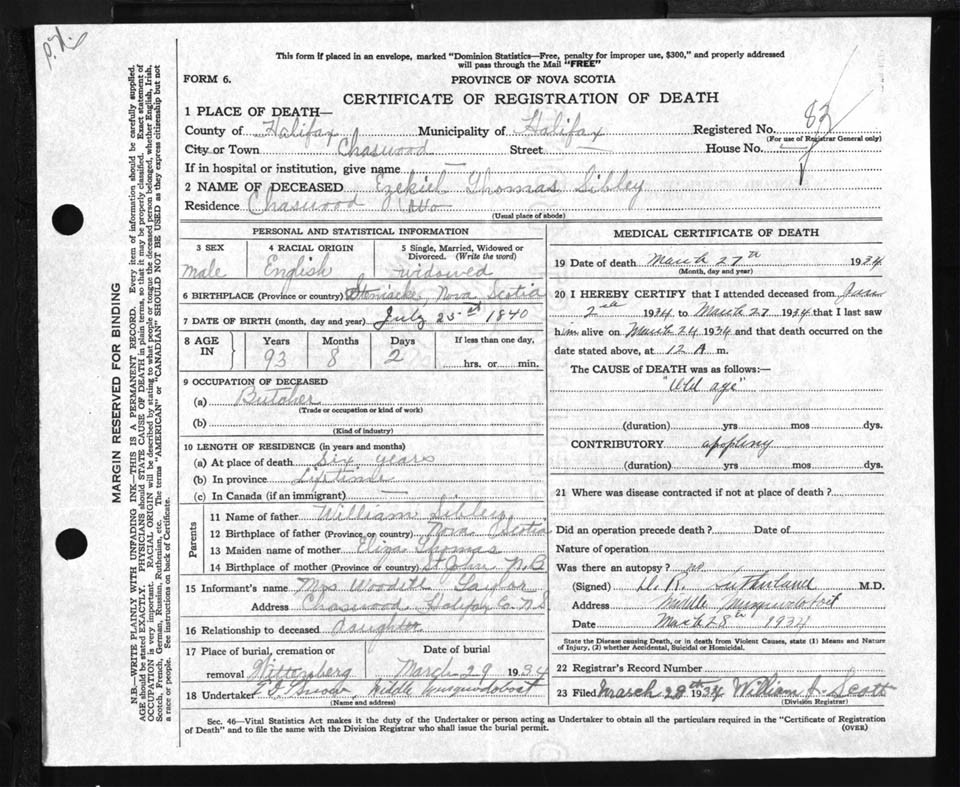 This form if placed in an envelope, marked "Dominion Statistics—Free, penalty for improper use, $300," and properly addressed
will pass through the Mail "FREE"
FORM 6.
PROVINCE OF NOVA SCOTIA
CERTIFICATE OF REGISTRATION OF DEATH
1 PLACE OF DEATH—
County of Halifax Municipality of Halifax Registered No. 83
(For use of Registrar General only)
City or Town Chaswood Street — House No.
If in hospital or institution, give name —
2 NAME OF DECEASED Ezekiel Thomas Sibley
Residence Chaswood
(Usual place of abode)
PERSONAL AND STATISTICAL INFORMATION
3 SEX 4 RACIAL ORIGIN 5 Single, Married, Widowed or Divorced. (Write the word)
Male English widowed
6 BIRTHPLACE (Province or country) Stewiacke, Nova Scotia
7 DATE OF BIRTH (month, day and year) July 25st 1840
8 AGE IN Years Months Days If less than one day,
93 8 2 hrs. or min.
9 OCCUPATION OF DECEASED
(a) Butcher
(Trade or occupation or kind of work)
(b)
(Kind of industry)
10 LENGTH OF RESIDENCE (in years and months)
(a) At place of death six years
(b) In province Lifetime
(c) In Canada (if an immigrant) —
Parents
11 Name of father William Sibley
12 Birthplace of father (Province or country) Nova Scotia
13 Maiden name of mother Eliza Thomas
14 Birthplace of mother (Province or country) St John N.B
15 Informant's name Mrs Woodill Taylor
Address Chaswood Halifax Co. NS
16 Relationship to deceased daughter
17 Place of burial, cremation or removal Date of burial
Wittenberg March 29 1934
18 Undertaker Middle Musquodoboit
(Name and address)
MEDICAL CERTIFICATE OF DEATH
19 Date of death March 27th 1934
(Month, day and year)
20 I HEREBY CERTIFY that I attended deceased from
2nd 1934 to March 27 1934 that I last saw
him alive on March 24 1934 and that death occurred on
date stated above, at 12 A m.
The CAUSE of DEATH was as follows:—
"Old age"
(duration) yrs mos dys.
CONTRIBUTORY apoplexy
(duration) yrs mos dys.
21 Where was disease contracted if not at place of death?
Did an operation precede death? Date of
Nature of operation
Was there an autopsy? no
(Signed) D. R. Sutherland M.D.
Address Middle Musquodoboit
Date March 28th 1934
State the Disease causing Death, or in death from Violent Causes, state (1) Means and Nature of Injury, (2) whether Accidental, Suicidal or Homicidal.
22 Registrar's Record Number
23 Filed March 28th 1934 William J. Scott
(Division Registrar)
Sec. 46—Vital Statistics Act makes it the duty of the Undertaker or person acting as Undertaker to obtain all the particulars required in the "Certificate of Registration
of Death" and to file the same with the Division Registrar who shall issue the burial permit.
(OVER)
MARGIN RESERVED FOR BINDING
N.B.—WRITE PLAINLY WITH UNFADING INK—THIS IS A PERMANENT RECORD. Every item of information should be carefully supplied.
AGE should be stated EXACTLY. PHYSICIANS should STATE CAUSE OF DEATH in plain terms, so that it may be properly classified. Exact statement of
OCCUPATION is very important. RACIAL ORIGIN will be described by stating to what people or tongue the deceased person belonged, whether English, Irish,
Scotch, French, German, Russian, Ruthenian, etc. The terms "AMERICAN" or "CANADIAN" SHOULD NOT BE USED as they express citizenship but not
a race or people. See instructions on back of Certificate.